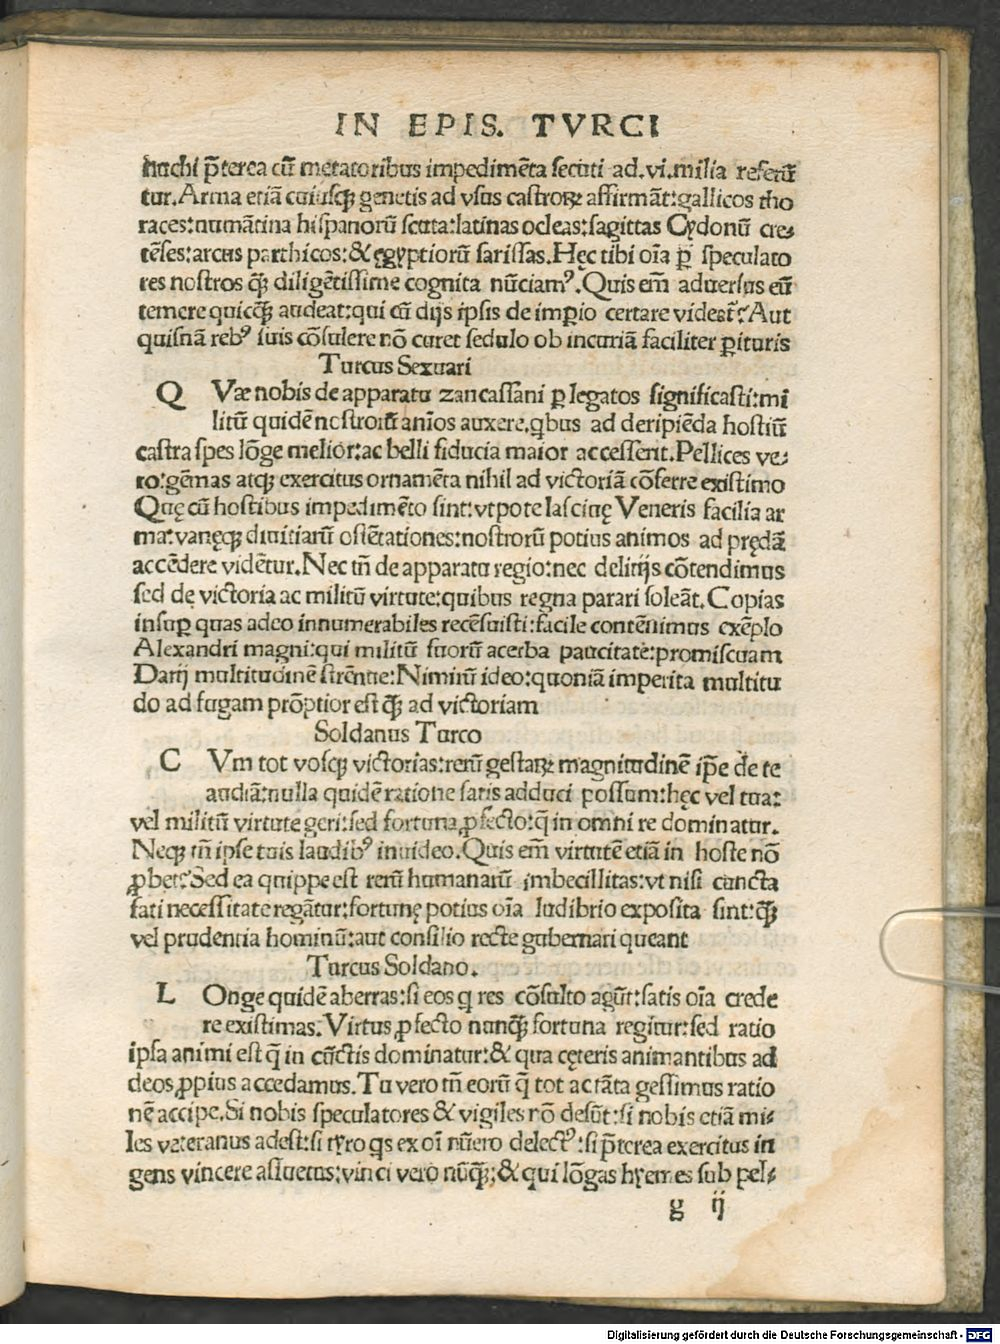 IN EPIS. TVRCI
nuchi p̄terea cū metatoribus impedimēta secuti ad.vi.milia referū
tur. Arma etiā cuiusqꝫ genetis ad vsus castroꝝ affirmāt:gallicos tho
races:numātina hispanorū scuta:latinas ocleas:sagittas Cydonū cre⸗
tēses:arcus parthicos:& ęgyptiorū sarissas. Hęc tibi oīa ꝑ speculato
res nostros qꝫ̄ diligētissime cognita nūciamꝰ. Quis em̄ aduersus eū
temere quicqꝫ̄ audeat:qui cū dijs ipsis de imꝑio certare videat᷑? Aut
quisnā rebꝰ suis cōsulere nō curet sedulo ob incuriā faciliter ꝑituris
Turcus Sexuari
Q Væ nobis de apparatu zancassani ꝑ legatos significasti:mi
litū quidē nostroꝝ anīos auxere.q̇bus ad deripiēda hostiū
castra spes lōge melior:ac belli fiducia maior accesserit. Pellices ve⸗
ro:gēmas atqꝫ exercitus ornamēta nihil ad victoriā cōferre existimo
Quę cū hostibus impedimēto sint:vtpote lasciuę Veneris facilia ar
ma:vanęqꝫ diuitiarū ostētationes:nostrorū potius animos ad prędā
accēdere vidētur. Nec tn̄ de apparatu regio:nec delitijs cōtendimus
sed de victoria ac militū virtute:quibus regna parari soleāt. Copias
insuꝑ quas adeo innumerabiles recēsuisti:facile contēnimus exēplo
Alexandri magni:qui militū suorū acerba paucitate:promiscuam
Darij multitudinē strēnue:Nimirū ideo:quoniā imperita multitu
do ad fugam prōptior est qꝫ̄ ad victoriam
Soldanus Turco
C Vm tot vosqꝫ victorias:rerū gestaꝝ magnitudinē ip̄e de te
audiā:nulla quidē ratione satis adduci possum:hęc vel tua:
vel militū virtute geri:sed fortuna ꝓfecto:q̄ in omni re dominatur.
Neqꝫ tn̄ ipse tuis laudibꝰ inuideo. Quis em̄ virtutē etiā in hoste nō
ꝓbet? Sed ea quippe est rerū humanarū imbecillitas:vt nisi cuncta
fati necessitate regātur:fortunę potius oīa ludibrio exposita sint:qꝫ̄
vel prudentia hominū:aut consilio recte gubernari queant
Turcus Soldano.
L Onge quidē aberras:si eos q̇ res cōsulto agūt:satis oīa crede
re existimas. Virtus ꝓfecto nunqꝫ̄ fortuna regitur:sed ratio
ipsa animi est q̄ in cūctis dominatur:& qua cęteris animantibus ad
deos ꝓpius accedamus. Tu vero tn̄ eorū q̄ tot ac tāta gessimus ratio
nē accipe. Si nobis speculatores & vigiles nō desūt:si nobis etiā mi⸗
les veteranus adest:si tyro q̇s ex oī nūero delectꝰ:si p̄terea exercitus in
gens vincere assuetus:vinci vero nūqꝫ̄:& qui lōgas hyemes sub pel⸗
g ij
Digitalisierung gefördert durch die Deutsche Forschungsgemeinschaft - DFG